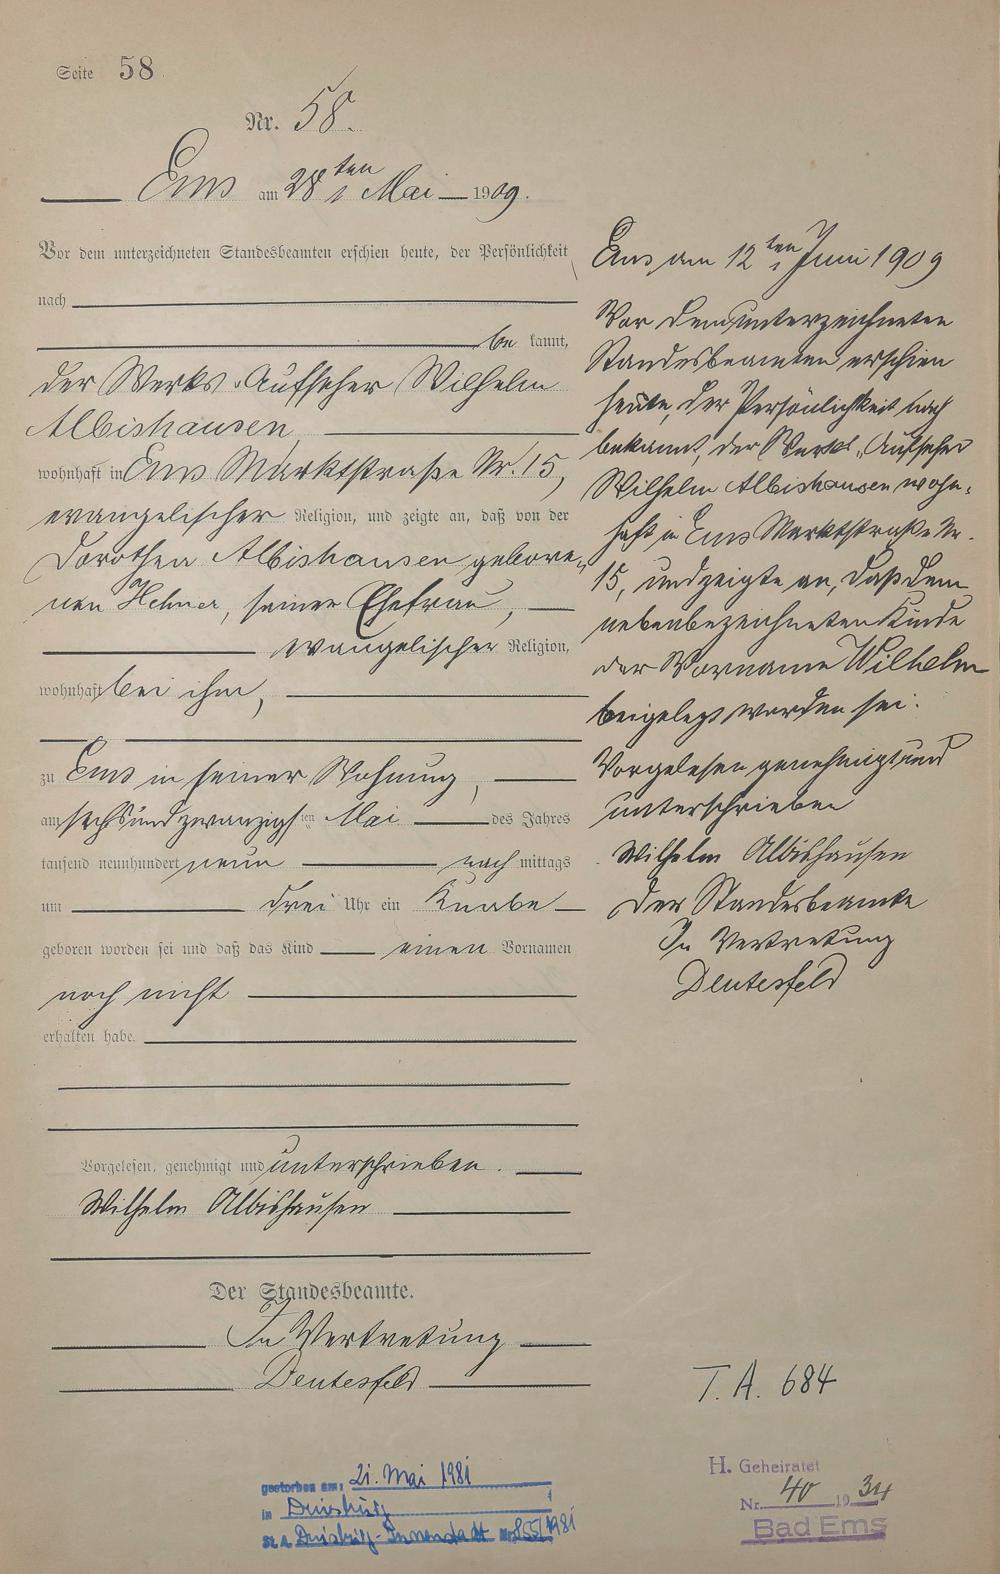 Seite 58
Nr. 58.
Ems am 28ten Mai 1909.
Vor dem unterzeichneten Standesbeamten erschien heute, der Persönlichkeit
nach
be kannt,
der Werks-Aufseher Wilhelm
Albishausen
wohnhaft in Ems Marktstraße Nr. 15,
evangelischer Religion, und zeigte an, daß von der
Dorothea Albishausen gebore-
nen Hehner, seiner Ehefrau,
evangelischer Religion,
wohnhaft bei ihm,
zu Ems in seiner Wohnung,
am sechsundzwanzigsten Mai des Jahres
tausend neunhundert neun nach mittags
um drei Uhr ein Knabe
geboren worden sei und daß das Kind einen Vornamen
noch nicht
erhalten habe.
Vorgelesen, genehmigt und unterschrieben.
Wilhelm Albishausen
Der Standesbeamte.
In Vertretung
Deutesfeld
Ems am 12ten Juni 1909
Vor dem unterzeichneten
Standesbeamten erschien
heute, der Persönlichkeit nach
bekannt, der Werks-Aufseher
Wilhelm Albishausen wohn-
haft in Ems Marktstraße Nr.
15, und zeigte an, daß dem
nebenbezeichneten Kinde
der Vorname Wilhelm
beigelegt worden sei.
Vorgelesen genehmigt und
unterschrieben
Wilhelm Albishausen
Der Standesbeamte
In Vertretung
Deutesfeld
T. A. 684
gestorben am: 21. Mai 1981
in Duisburg
St.A. Duisburg-Innenstadt Nr. 855/1981
H. Geheiratet
Nr. 40 1934
Bad Ems